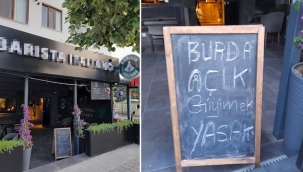 BARISTA ITALIANO
BURDA
AÇIK
Giyinmek
YASAK